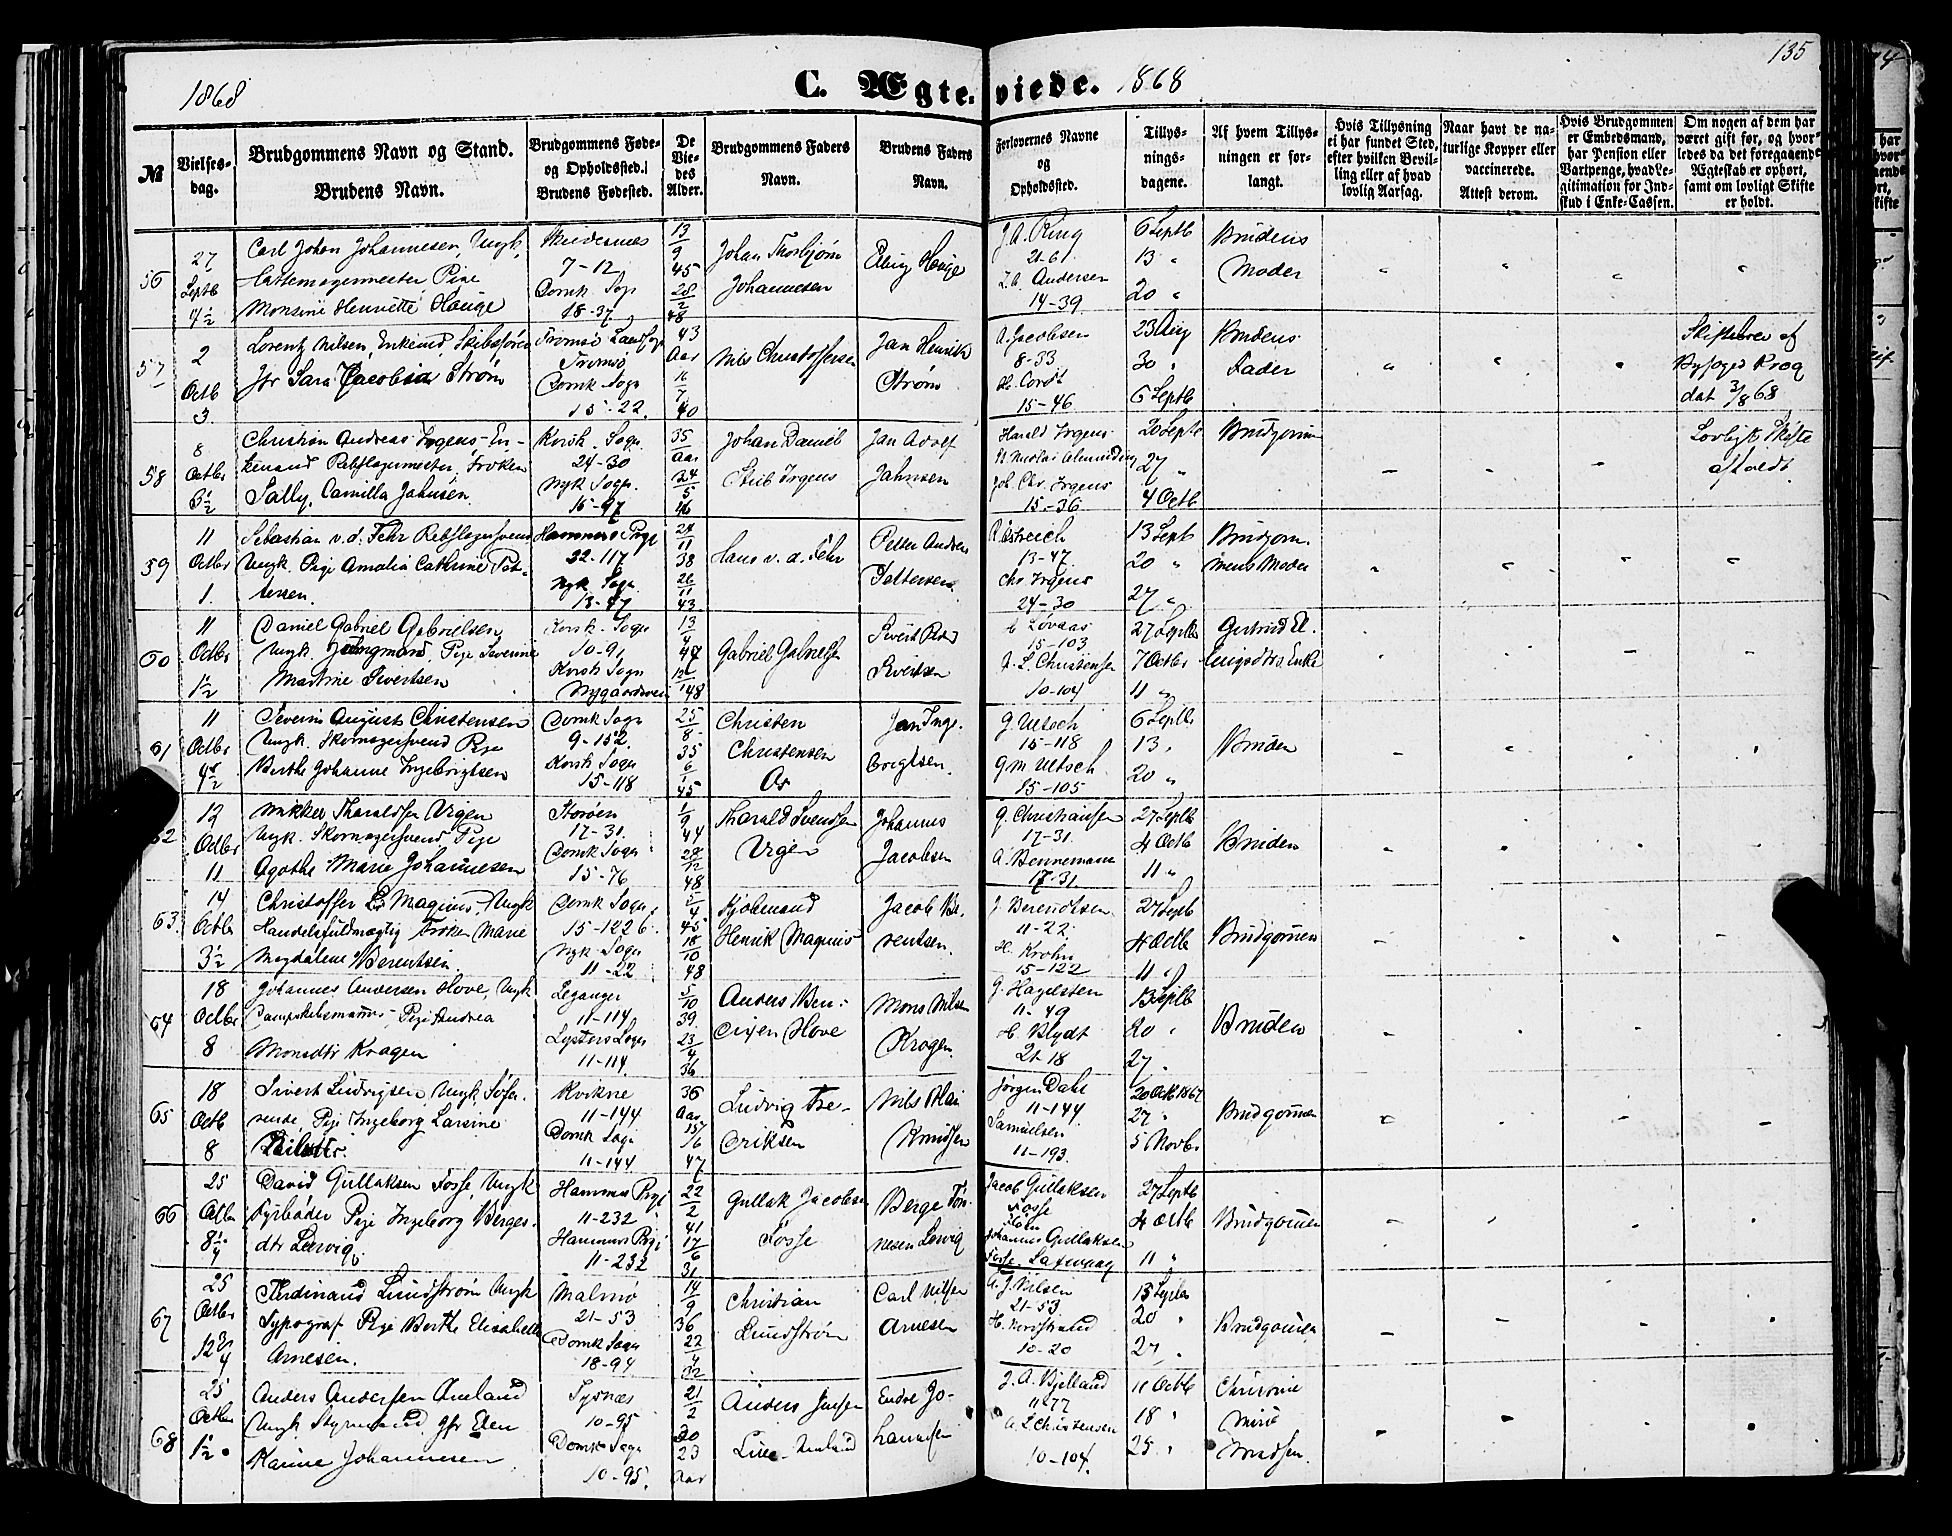 135
1868
C. Ægteviede. 1868
№
Vielsesdag.
Brudgommens Navn og Stand.
Brudens Navn.
Brudgommens Føde-
og Opholdssted.
Brudens Fødested.
De
Vie-
des
Alder.
Brudgommens Faders
Navn.
Brudens Faders
Navn.
Forlovernes Navne
og
Opholdssted.
Tillys-
nings-
dagene.
Af hvem Tillys-
ningen er for-
langt.
Hvis Tillysning
ei har fundet Sted,
efter hvilken Bevil-
ling eller af hvad
lovlig Aarsag.
Naar havt de na-
turlige Kopper eller
vaccinerede.
Attest derom.
Hvis Brudgommen
er Embedsmand,
har Pension eller
Vartpenge, hvad Le-
gitimation for Ind-
skud i Enke-Cassen.
Om nogen af dem har
været gift før, og hvor-
ledes da det foregaaende
Ægteskab er ophørt,
samt om lovligt Skifte
er holdt.
56
27
Septb
4½
Carl Johan Johannesen, Ungk.
Pige
Monsine Henriette Hauge
7-12
Domk. Sogn
18-37
13/9
45
28/2
48
Johan Thorbjørn
Johannesen
Hauge
J. A. Ring
21-61
Andersen
14-39
6 Septb
13 "
20 "
Brudens
Moder
57
2
Octb
3
Lorentz Nilsen, Enkemd, Skibsfører
Jfr Sara Jacobea Strøm
Tromsø Landsogn
Tromsø
Domk. Sogn
15-22.
43
Aar
11/7
40
Nils Christoffersen
Jan Henrik
Strøm
A. Jacobsen
8-33
15-46
23 Aug
30 "
6 Septb
Brudens
Fader
Skiftebrev af
Byfoged Krog
dat 3/8 68
58
8
Octbr
6½
Christian Andreas Irgens - En-
kemand Rebslagermester, Frøken
Sally, Camilla Jahnsen
Korsk. Sogn
24-30
Nyk. Sogn.
15-97
35
Aar
24/5
46
Johan Daniel
Stub Irgens
Jan Adolf
Jahnsen
Harald Irgens
Joh. Chr. Irgens
15-36
20 Septb
27 "
4 Octb
Brudgom
Lovligt Skifte
afholdt
59
11
Octbr
1.
Sebastian v. d. Fehr Rebslagersvend
Ungk. Pige Amalia Cathrine Pet-
tersen.
Hammers Prgj
22-117
Nyk. Sogn
13-47
24/11
38
26/11
43
Hans v. d. Fehr
Petter Andreas
Pettersen
Østreich
13-47
Chr. Irgens
24-30
13 Septb
20 "
27 "
Brudgom-
mens Moder
60
11
Octbr
1½
Daniel Gabriel Gabrielsen
Ungk. Pige Severine
Martine Sivertsen
Korsk. Sogn
10-91
Korsk. Sogn
Nygaardsveien
13/4
47
48
Gabriel Gabrielsen
Sivert
Sivertsen
Lovaas
15-103
A. L. Christensen
10-104
27 Septbr
7 Octbr
11 "
Gertrud El.
Enke
61
11
Octbr
4½
Severin August Christensen
Ungk. Skomagersvend Pige
Berthe Johanne Ingebrigtsen
Domk. Sogn
9-152.
Korsk. Sogn
15-118
25/8
35
6/1
45
Christen
Christensen
Os
Jan Inge-
brigtsen.
G. Ultsch
15-118
G. M. Ultsch
15-105
6 Septbr
13 "
20 "
Bruden
62
12
Octbr
11
Mikkel Tharaldsen Vigen
Ungk. Skomagersvend Pige
Agathe Marie Johannesen
Storøen
17-31.
Domk. Sogn
15-76
1/9
44
28/12
48
Tharald Svendsen
Vigen
Johannes
Jacobsen
G. Christiansen
17-31.
A. Bennemann
17-31
27 Septb
4 Octb
11 "
Bruden
63.
14
Octbr
3½
Christoffer Magnus, Ungk
Handelsfuldmægtig Frøken Marie
Magdalene Berentsen
Domk Sogn
15-122 b
Nyk. Sogn
11-22
2/4
45
18/10
48
Kjøbmand
Henrik Magnus
Jacob Be-
rentsen.
J. Berendtsen
11-22
H. Krohn
15-122
27 Septb
4 Octb
11 "
Brudgommen
64
18
Octbr
8
Johannes Andersen Hove, Ungk
Pige Andrea
Monsdtr Kragen
Leganger
11-114
Lysters Sogn
11-114.
5/10
39.
23/4
36
Anders Ben-
dixen Hove
Mons Nilsen
Krogen
G. Hagelsten
11-49
H. Blydt
21-18
13 Septb
20 "
27.
Bruden
65
18
Octb
8
Sivert Ludvigsen, Ungk. Søfa-
rende, Pige Ingeborg Larsine
Kvikne
11-144
Domk Sogn
11-144
36
Aar
15/6
47
Ludvig Fre-
driksen
Nils
Knudsen
Jørgen Dahl
11-144
Samuelsen
11-193.
20 Octb 1867
27 "
5 Novbr
Brudgommen
66
25
Octbr
8¼
David Gullaksen Fosse, Ungk
Fyrbøder Pige Ingeborg Berges-
dtr Lervig.
Hammers Prgj
11-232
Hammers Prgj
11-232
22/2
41
17/6
31
Gullak Jacobsen
Fosse
Berge Tøn-
nesen Lervig
Jacob Gullaksen
Fosse
Johannes Gullaksen
Fosse
27 Septb
4 Octb
11 "
Brudgommen
67
25
Octbr
12¾
Ferdinand Lundstrøm Ungk
Typograf Pige Berthe Elisabeth
Arnesen.
Malmø
21-53
Domk Sogn
18-94
14/9
36
22/4
32
Christian
Lundstrøm
Carl Nilsen
Arnesen
A. J. Nilsen
21-53
H. Nordstrand
10-20
13 Septbr
20 "
27 "
Brudgommen
68
25
Octbr
1½
Anders Andersen Amland
Ungk. Styrmand, Jfr Elen
Karine Johannesen
Tysnæs
10-95
Domk. Sogn
10-95.
21/2
30
23
Aar
Anders Jensen
Amland
Endre Jo-
hannesen
J. A. Bjelland
11-77
A. L. Christensen
10-104.
11 Octb
18 "
25 "
Knudsen.